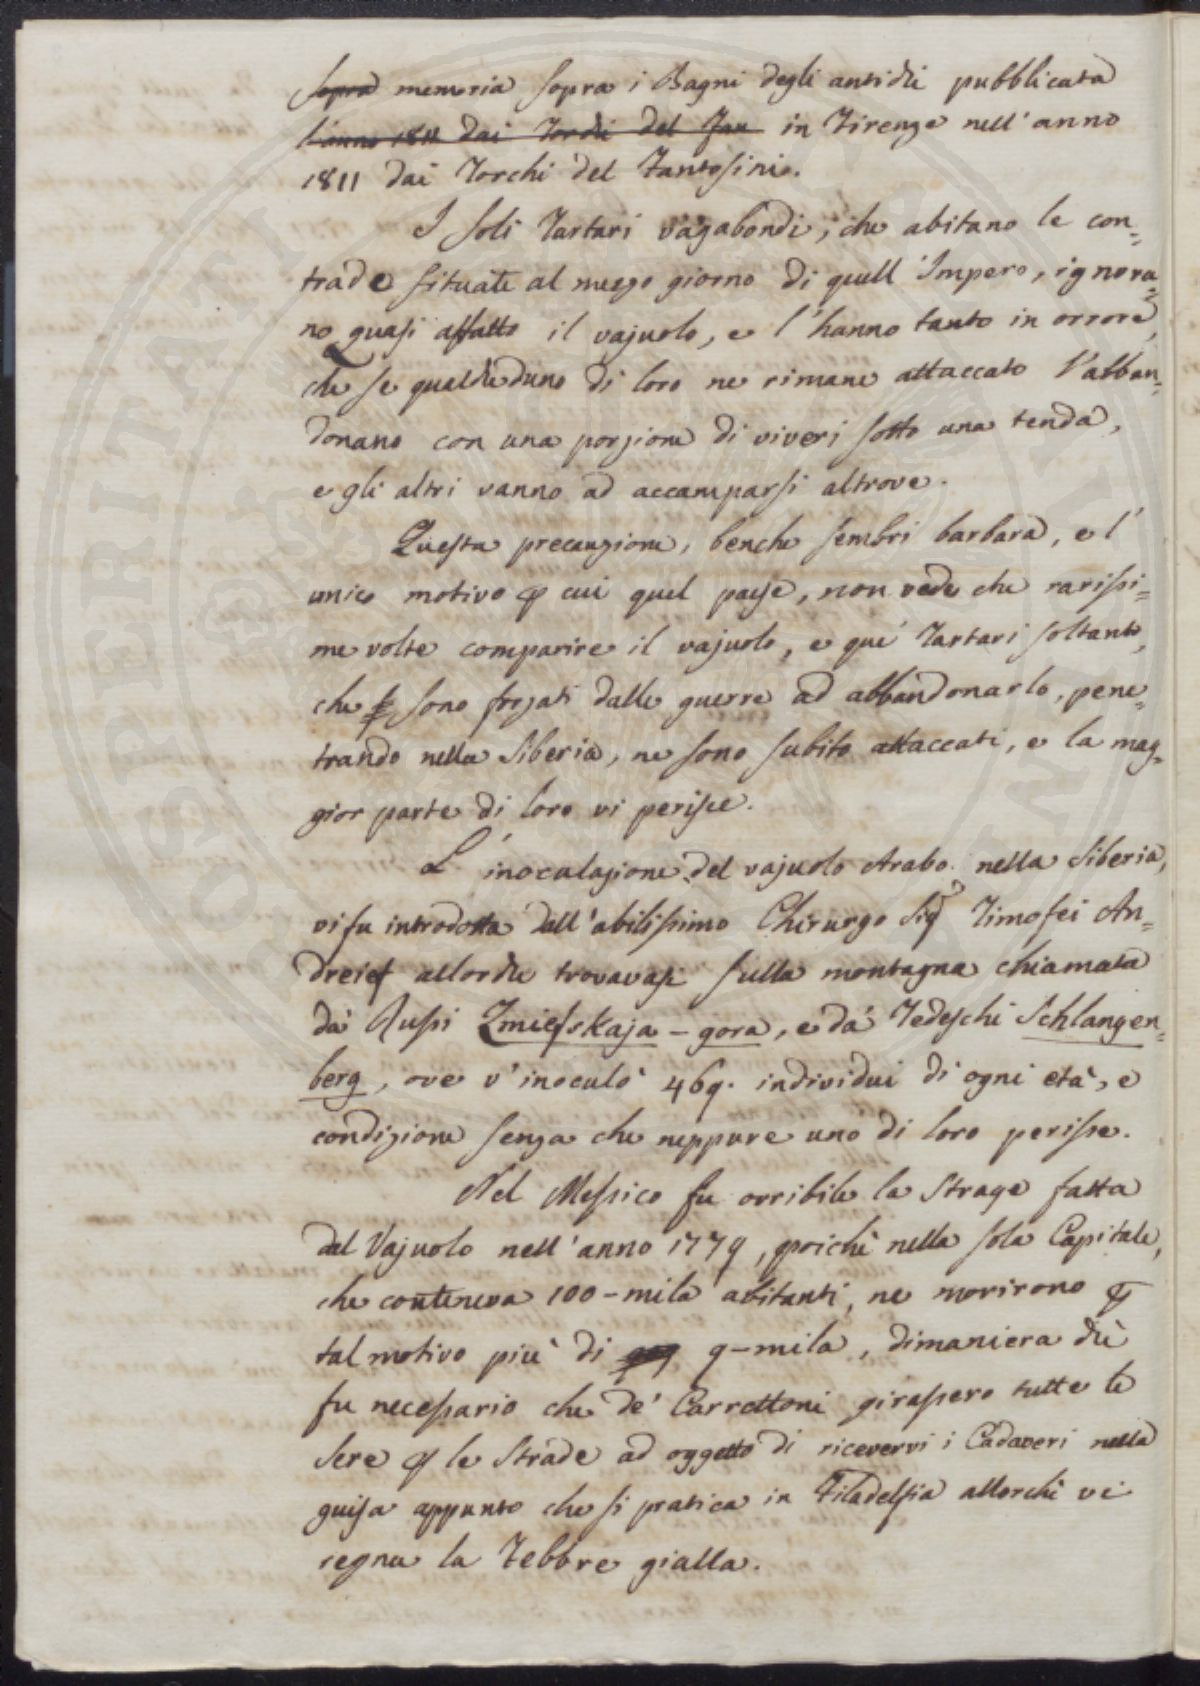 sopra memoria sopra i Bagni degli antichi pubblicata
l'anno 1811 dai Torchi del Fan in Firenze nell'anno
1811 dai Torchi del Fantosini.
I soli Tartari vagabondi, che abitano le con=
trade situate al mezzo giorno di quell'Impero, ignora=
no quasi affatto il vajuolo, e l'hanno tanto in orrore,
che se qualcheduno di loro ne rimane attaccato l'abban=
donano con una porzione di viveri sotto una tenda,
e gli altri vanno ad accamparsi altrove.
Questa precauzione, benche sembri barbara, e l'
unico motivo ꝑ cui quel paese, non vede che rarissi=
me volte comparire il vajuolo, e que' Tartari soltanto,
che sono forzati dalle guerre ad abbandonarlo, pene=
trando nella Siberia, ne sono subito attaccati, e la mag=
gior parte di loro vi perisce.
L'inoculazione del vajuolo Arabo nella Siberia,
vi fu introdotta dall'abilissimo Chirurgo Sigr Timofei An=
dreief allorche trovavasi sulla montagna chiamata
da' Russi Zmiefskaja - gora, e da' Tedeschi Schlangen=
berg, ove v'inoculò 469. individui di ogni età, e
condizione senza che neppure uno di loro perisse.
Nel Messico fu orribile la Strage fatta
dal Vajuolo nell'anno 1779, poichè nella sola Capitale,
che conteneva 100-mila abitanti, ne morirono ꝑ
tal motivo più di 9-mila, dimaniera chè
fu necessario che de' Carrettoni girassero tutte le
sere ꝑ le Strade ad oggetto di ricevervi i Cadaveri nella
guisa appunto che si pratica in Filadelfia allorchè vi
regna la Febbre gialla.